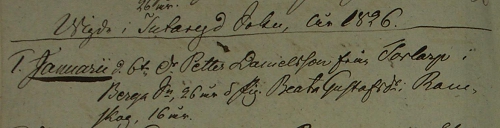 26 år.
Wigde i Tutaryd Sokn, År 1826.
1. Januarii d. 6t. Dr Petter Danielsson från Torlarp i
Berga Sn, 26 år & Pig. Beata Gustafsdr. i Ram-
skog, 16 år.